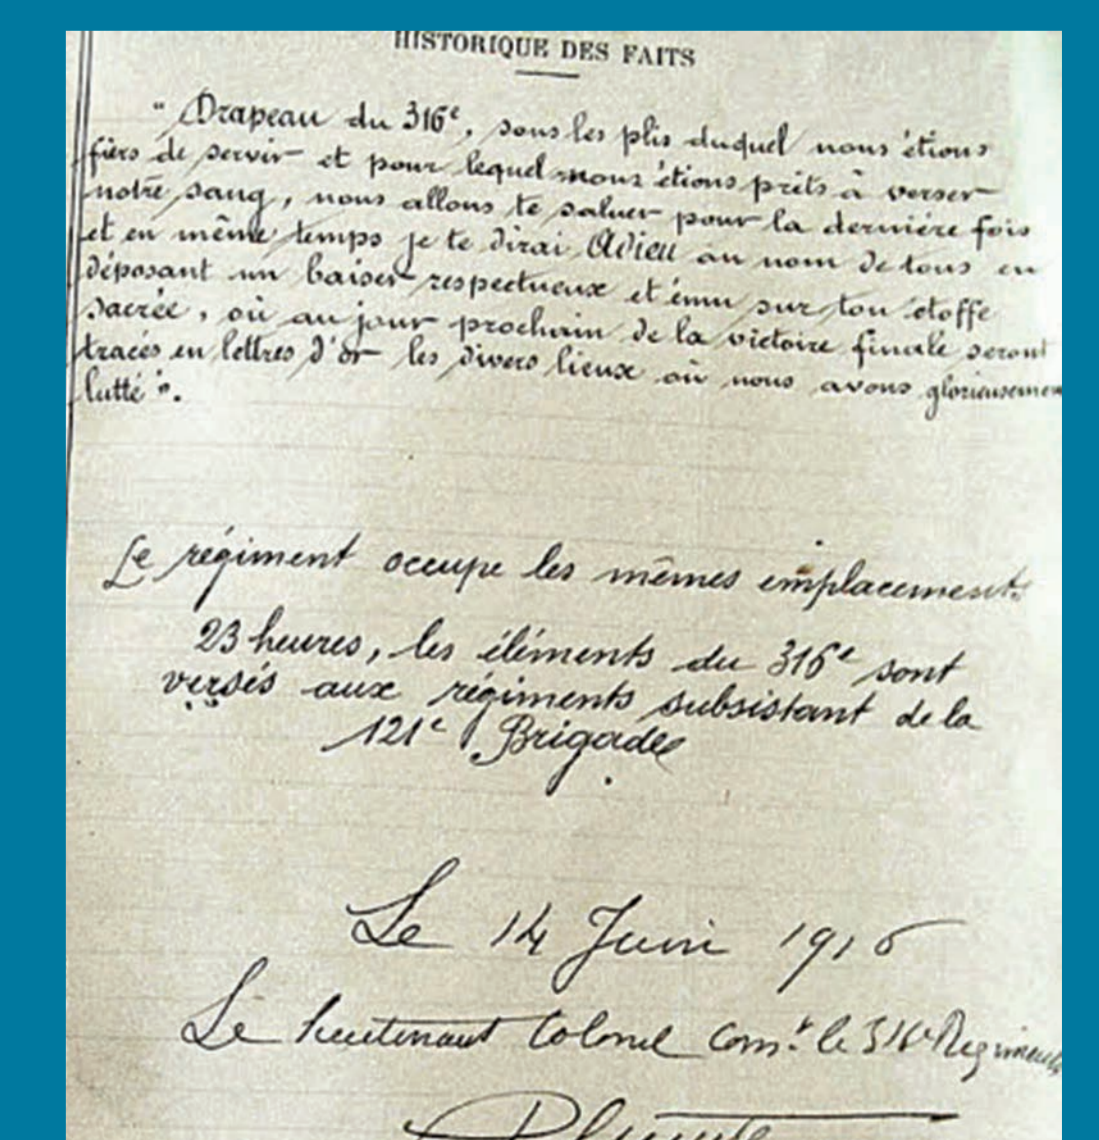 HISTORIQUE DES FAITS
" Drapeau du 316e, sous les plis duquel nous étions
fiers de servir et pour lequel nous étions prêts à verser
notre sang, nous allons te saluer pour la dernière fois
et en même temps je te dirai Adieu au nom de tous en
déposant un baiser respectueux et ému sur ton étoffe
sacrée, où au jour prochain de la victoire finale seront
tracés en lettres d'or les divers lieux où nous avons glorieusemen
lutté ".
Le régiment occupe les mêmes emplacements
23 heures, les éléments du 316e sont
versés aux régiments subsistant de la
121e Brigade
Le 14 Juin 1916
Le lieutenant Colonel Comt le 316e Régiment